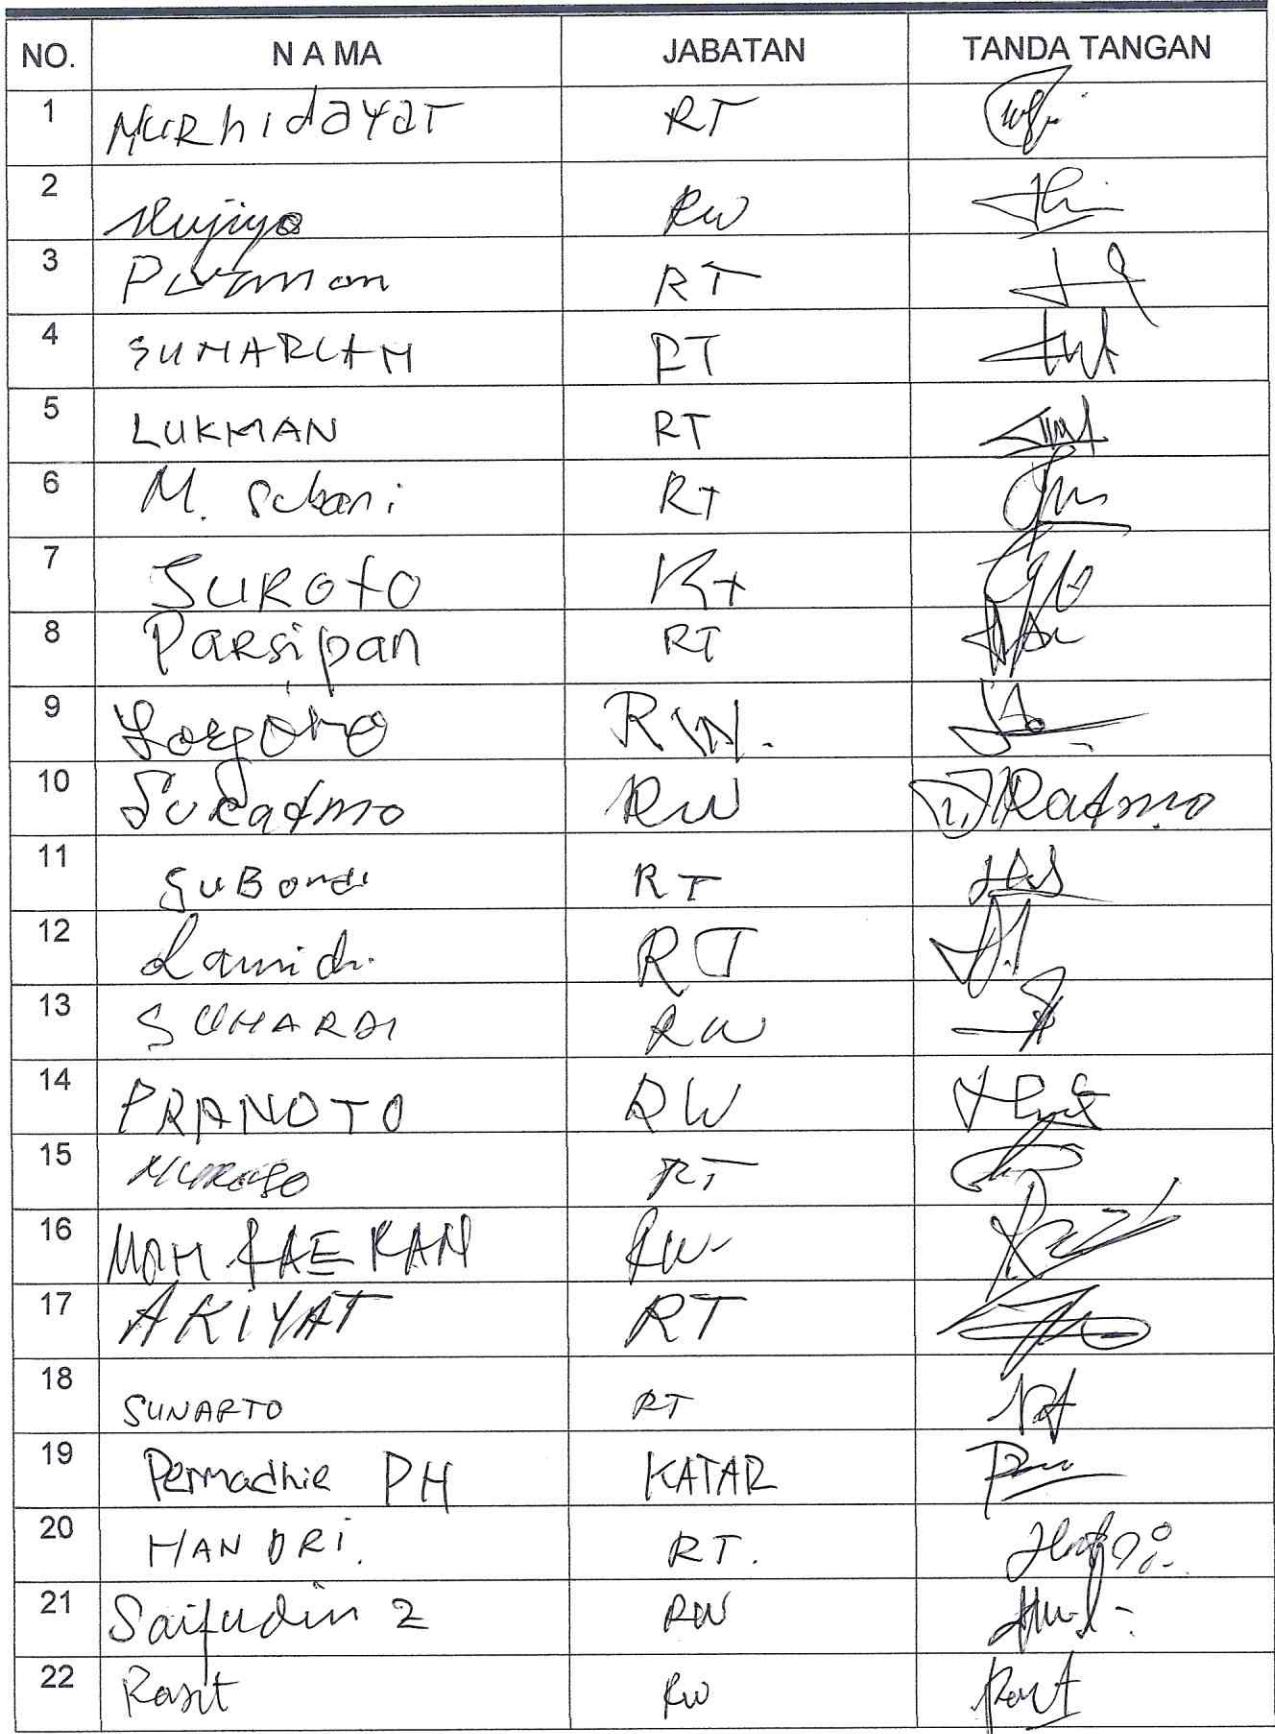 NO. N A M A JABATAN TANDA TANGAN
1 NURhidayat RT
2 Mujiyo RW
3 Parman RT
4 SUMARLAM RT
5 LUKMAN RT
6 M. Sobari RT
7 SUROTO RT
8 Parsipan RT
9 RW.
10 Sukatmo RW Ratmo
11 SuBandi RT
12 Lamidi. RT
13 SUHARDI RW
14 PRANOTO RW
15 RT
16 MOH. RW
17 AKIYAT RT
18 SUNARTO RT
19 Permadhie PH KATAR
20 HANDRI. RT.
21 Saifudin Z RW
22 Rasit RW